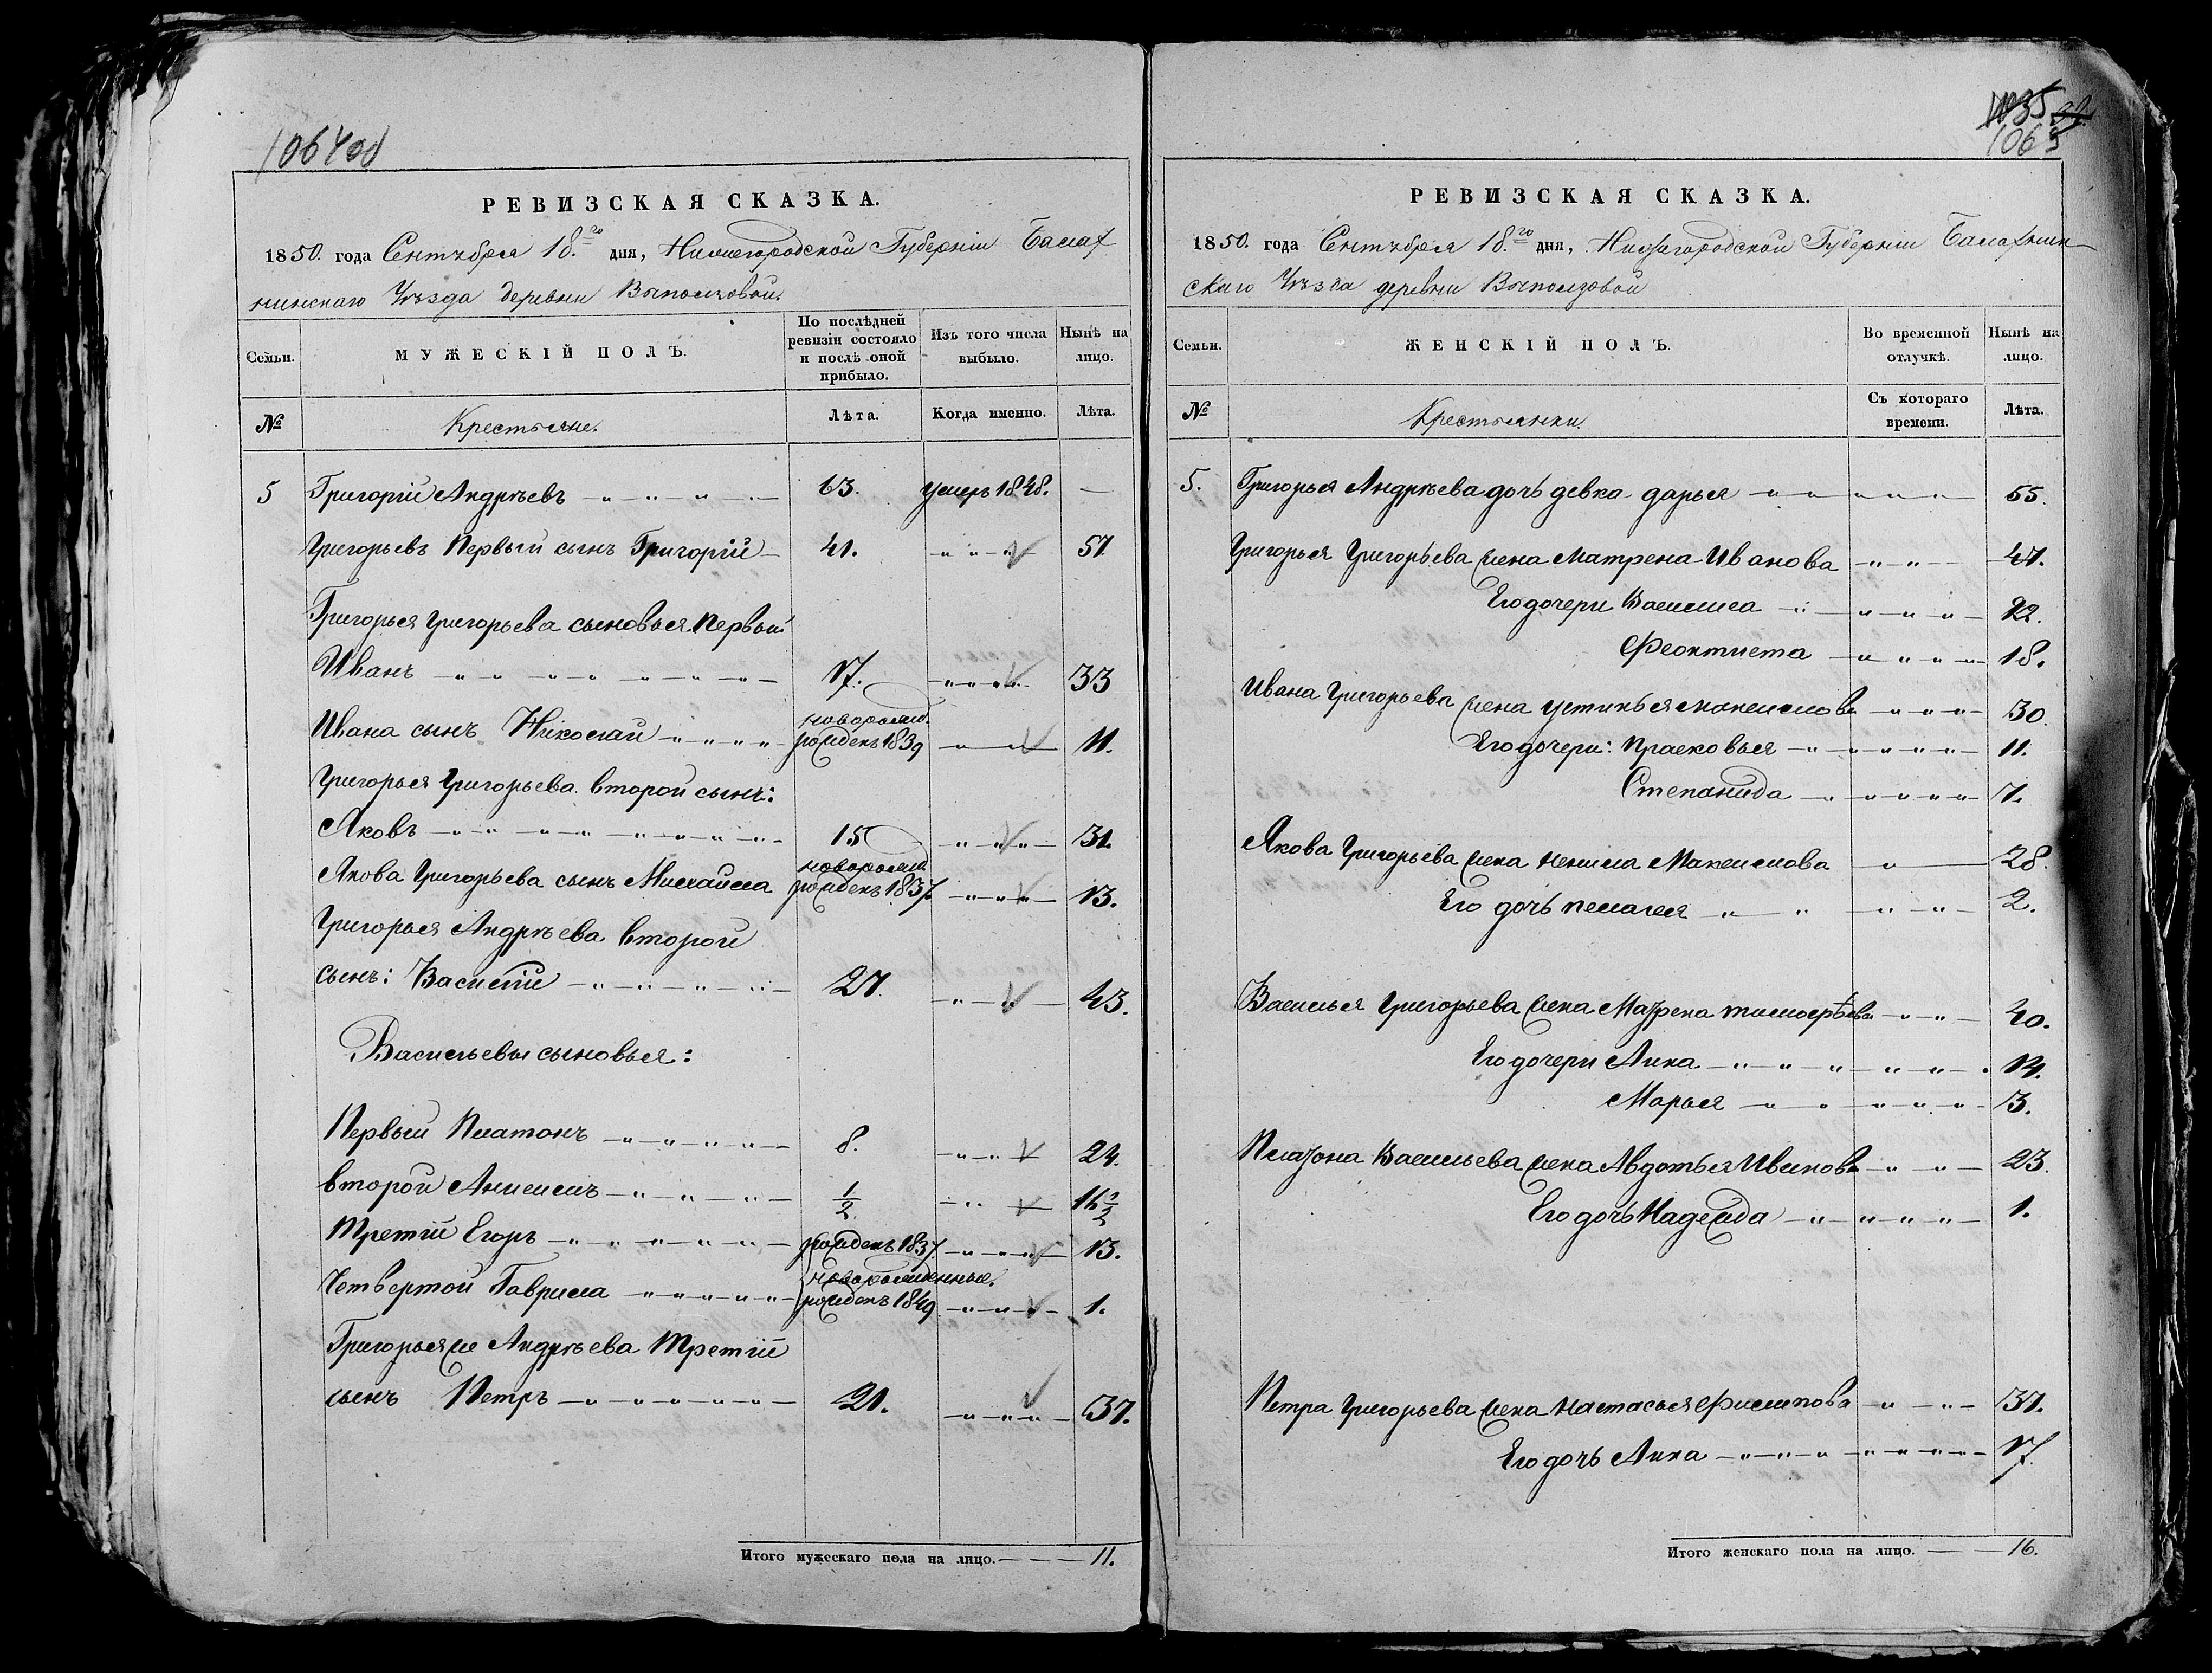 106 400
РЕВИЗСКАЯ СКАЗКА.
1850. года Сентября 18.го дня, Нижегородской Губерніи Балах
нинскаго Уѣзда деревни Выползовой.
Семьи.
МУЖЕСКІЙ ПОЛЪ.
По послѣдней ревизіи состояло и послѣ оной прибыло.
Изъ того числа выбыло.
Нынѣ на лицо.
№
Крестьяне.
Лѣта.
Когда именно.
Лѣта.
5 Григорій Андрѣевъ 63. умеръ 1848. —
Григорьевъ Первый сынъ Григорій 41. 57
Григорья Григорьева сыновья Первый
Иванъ 17. 33
новорожд.
Ивана сынъ Николай рожденъ 1839 11.
Григорья Григорьева второй сынъ:
Яковъ 15 31.
новорожд.
Якова Григорьева сынъ Михайла рожденъ 1837. 13.
Григорья Андрѣева второй
сынъ: Василій 27. 43.
Васильевы сыновья:
Первый Платонъ 8. 24.
второй Анисимъ 1/2 16 1/2
Третій Егоръ рожденъ 1837. 13.
новорожденные.
Четвертой Гаврила рожденъ 1849 1.
Григорья же Андрѣева Третій
сынъ Петръ 21. 37.
Итого мужескаго пола на лицо. 11.
35 32
106
РЕВИЗСКАЯ СКАЗКА.
1850. года Сентября 18.го дня, Нижегородской Губерніи Балахнин
скаго Уѣзда деревни Выползовой
Семьи.
ЖЕНСКІЙ ПОЛЪ.
Во временной отлучкѣ.
Нынѣ на лицо.
№
Крестьянки.
Съ котораго времени.
Лѣта.
5. Григорья Андрѣева дочь девка дарья 55.
Григорья Григорьева жена Матрена Иванова 47.
Его дочери Василиса 22.
Феоктиста 18.
Ивана Григорьева жена устинья максимова 30.
Его дочери: Прасковья 11.
Степанида 7.
Якова Григорьева жена ненила Максимова 28.
Его дочь пелагея 2.
Василья Григорьева жена Матрена тимофѣева 40.
Его дочери Анна 14.
Марья 3.
Платона Васильева жена Авдотья Иванова 23.
Его дочь Надежда 1.
Петра Григорьева жена настасья Филипова 37.
Его дочь Анна 17.
Итого женскаго пола на лицо. 16.